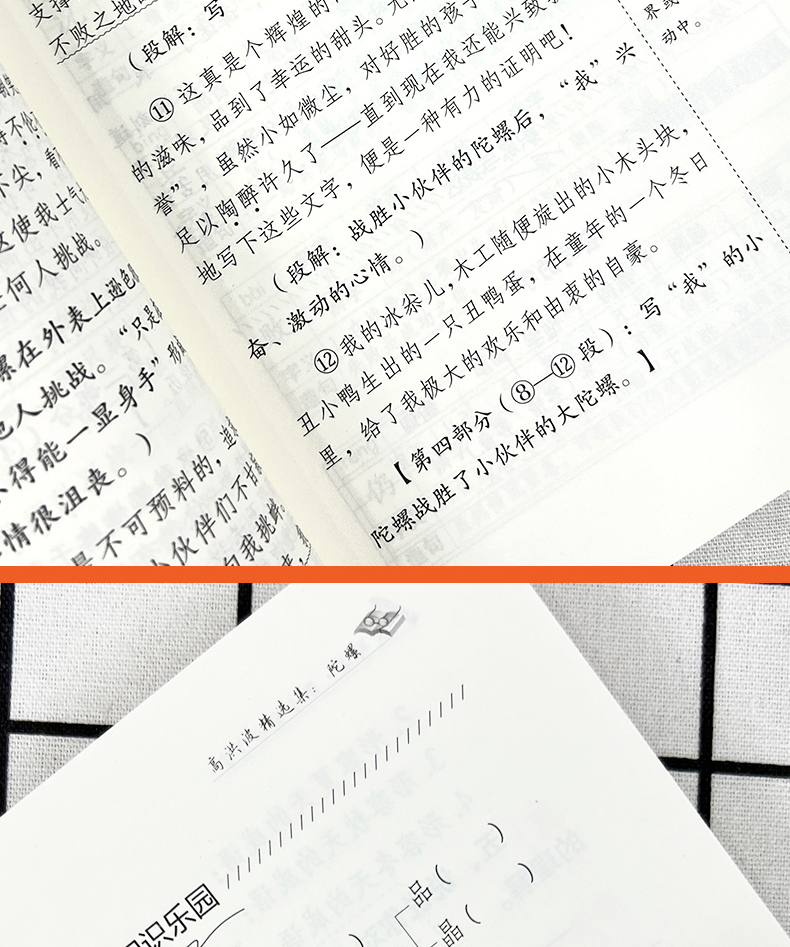 支撑
不败之地
(段解：写
⑪这真是个辉煌的
的滋味，品到了幸运的甜头。无
誉”，虽然小如微尘，对好胜的孩子
足以陶醉许久了——直到现在我还能兴致
地写下这些文字，便是一种有力的证明吧！
(段解：战胜小伙伴的陀螺后，“我”兴
奋、激动的心情。)
⑫我的冰尜儿，木工随便旋出的小木头块，
丑小鸭生出的一只丑鸭蛋，在童年的一个冬日
里，给了我极大的欢乐和由衷的自豪。
【第四部分(⑧—⑫段)：写“我”的小
陀螺战胜了小伙伴的大陀螺。】
界或
动中。
不尖，看
这使我士气
任何人挑战。
螺在外表上逊色
他人挑战。“只是
不得能一显身手”
情很沮丧。)
是不可预料的，
小伙伴们不甘
向我挑衅
高洪波精选集：陀螺
识乐园
品( )
晶( )